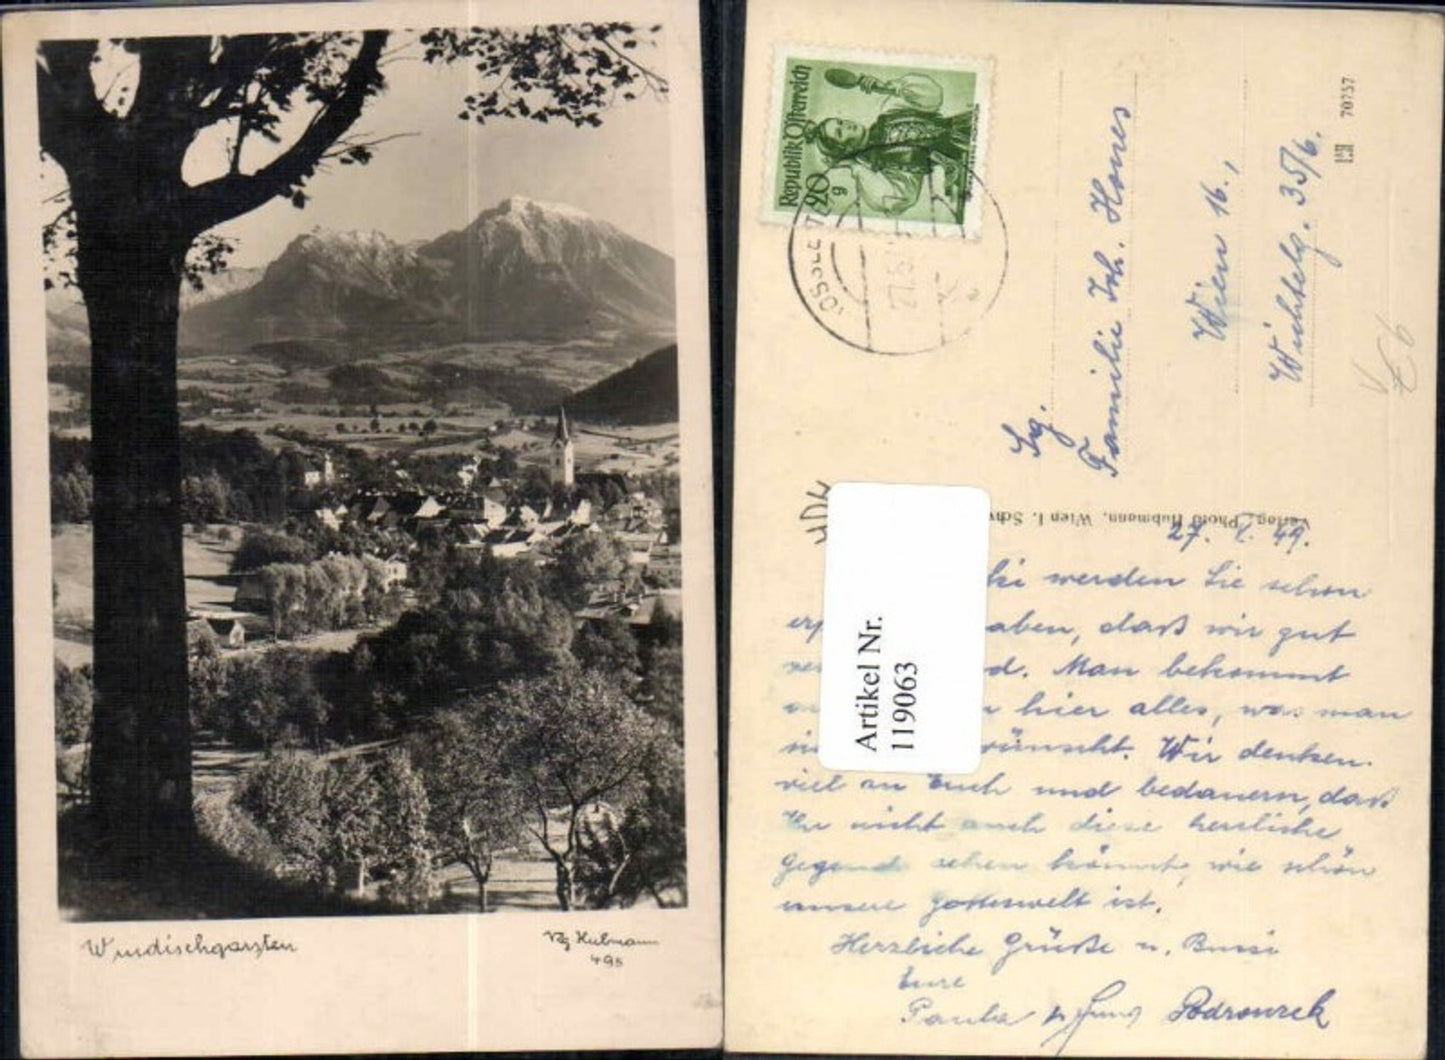 Windischgarsten
Vlg Hubmann
495
Republik Österreich
20
g
27.5.
70757
Sg.
Familie Joh. Hones
Wien 16.,
Wichtelg. 35/6.
€ 6
Verlag Photo Hubmann, Wien I. Schw
27. 49.
Artikel Nr.
119063
werden Sie schon
aben, daß wir gut
d. Man bekommt
hier alles, was man
wünscht. Wir denken
viel an Euch und bedauern, daß
Ihr nicht auch diese herrliche
Gegend sehen könnt, wie schön
unsere Gotteswelt ist.
Herzliche Grüße u. Bussi
Eure
Paula u. Podrouzek